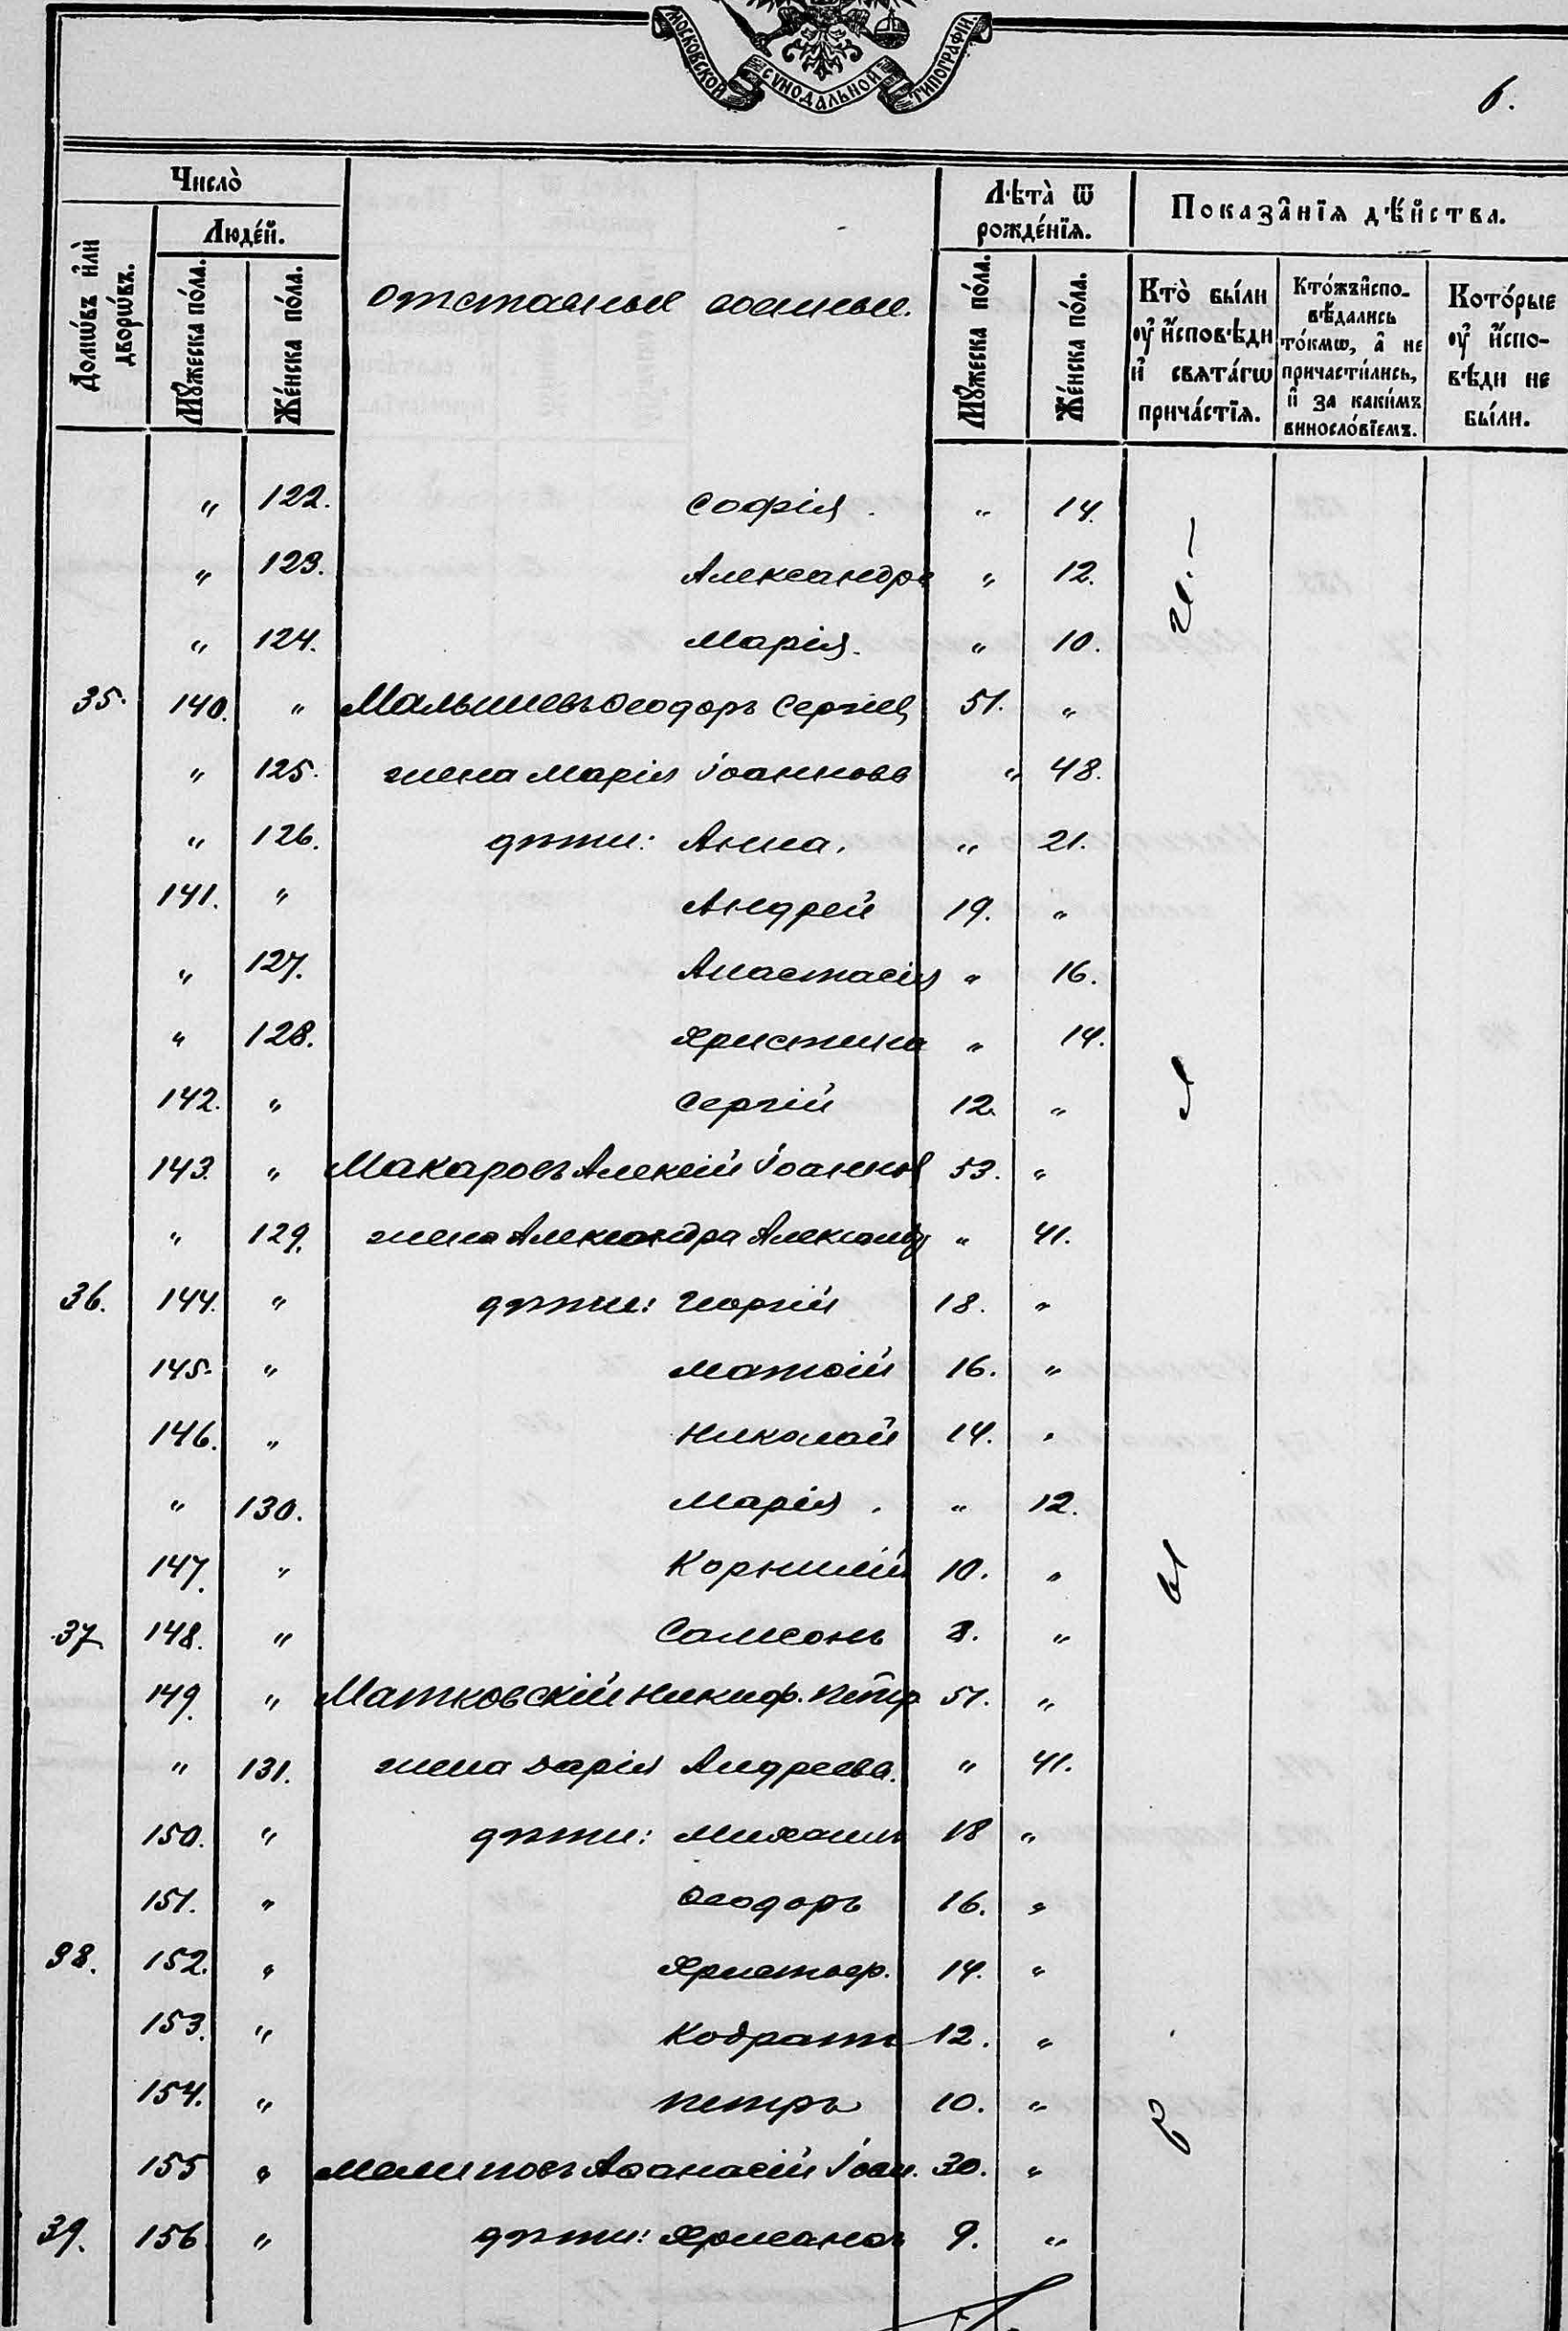 МОСКОВСКОЙ СѴНОДАЛЬНОЙ ТИПОГРАФІИ.
6.
Число̀
Людéй.
Домѡ́въ и҆лѝ дворѡ́въ.
Мꙋ́жеска по́ла.
Же́нска по́ла.
отставные военные.
Лѣта̀ ѿ рожде́нїѧ.
Мꙋ́жеска по́ла.
Же́нска по́ла.
Показа̑нїѧ дѣ́йства.
Кто̀ бы́ли ᲂу҆ и҆́сповѣди и҆ свѧта́гѡ прича́стїѧ.
Кто́жъ и҆сповѣ́дались то́кмѡ, а҆ не причасти́лись, и҆ за каки́мъ винослóвїемъ.
Кото́рые ᲂу҆ и҆́сповѣди не бы́ли.
„ 122. Софія. „ 14.
„ 123. Александра „ 12.
„ 124. Марія. „ 10.
35. 140. „ Малышевъ Ѳеодоръ Сергіев 51. „
„ 125. жена Марія Іоаннова „ 48.
„ 126. дѣти: Анна. „ 21.
141. „ Андрей 19. „
„ 127. Анастасія „ 16.
„ 128. Христина „ 14.
142. „ Сергій 12. „
143. „ Макаровъ Алексій Іоаннов 53. „
„ 129. жена Александра Александ „ 41.
36. 144. „ дѣти: Георгій 18. „
145. „ Матѳій 16. „
146. „ Николай 14. „
„ 130. Марія. „ 12.
147. „ Корнилій 10. „
37 148. „ Самсонъ 8. „
149. „ Матковскій Никиф. Петр. 51. „
„ 131. жена Дарія Андреева. „ 41.
150. „ дѣти: Михаилъ 18 „
151. „ Ѳеодоръ 16. „
38. 152. „ Христоф. 14. „
153. „ Кодратъ 12. „
154. „ Петръ 10. „
155 „ Аѳанасій Іоан. 30. „
39. 156 „ дѣти: 9. „